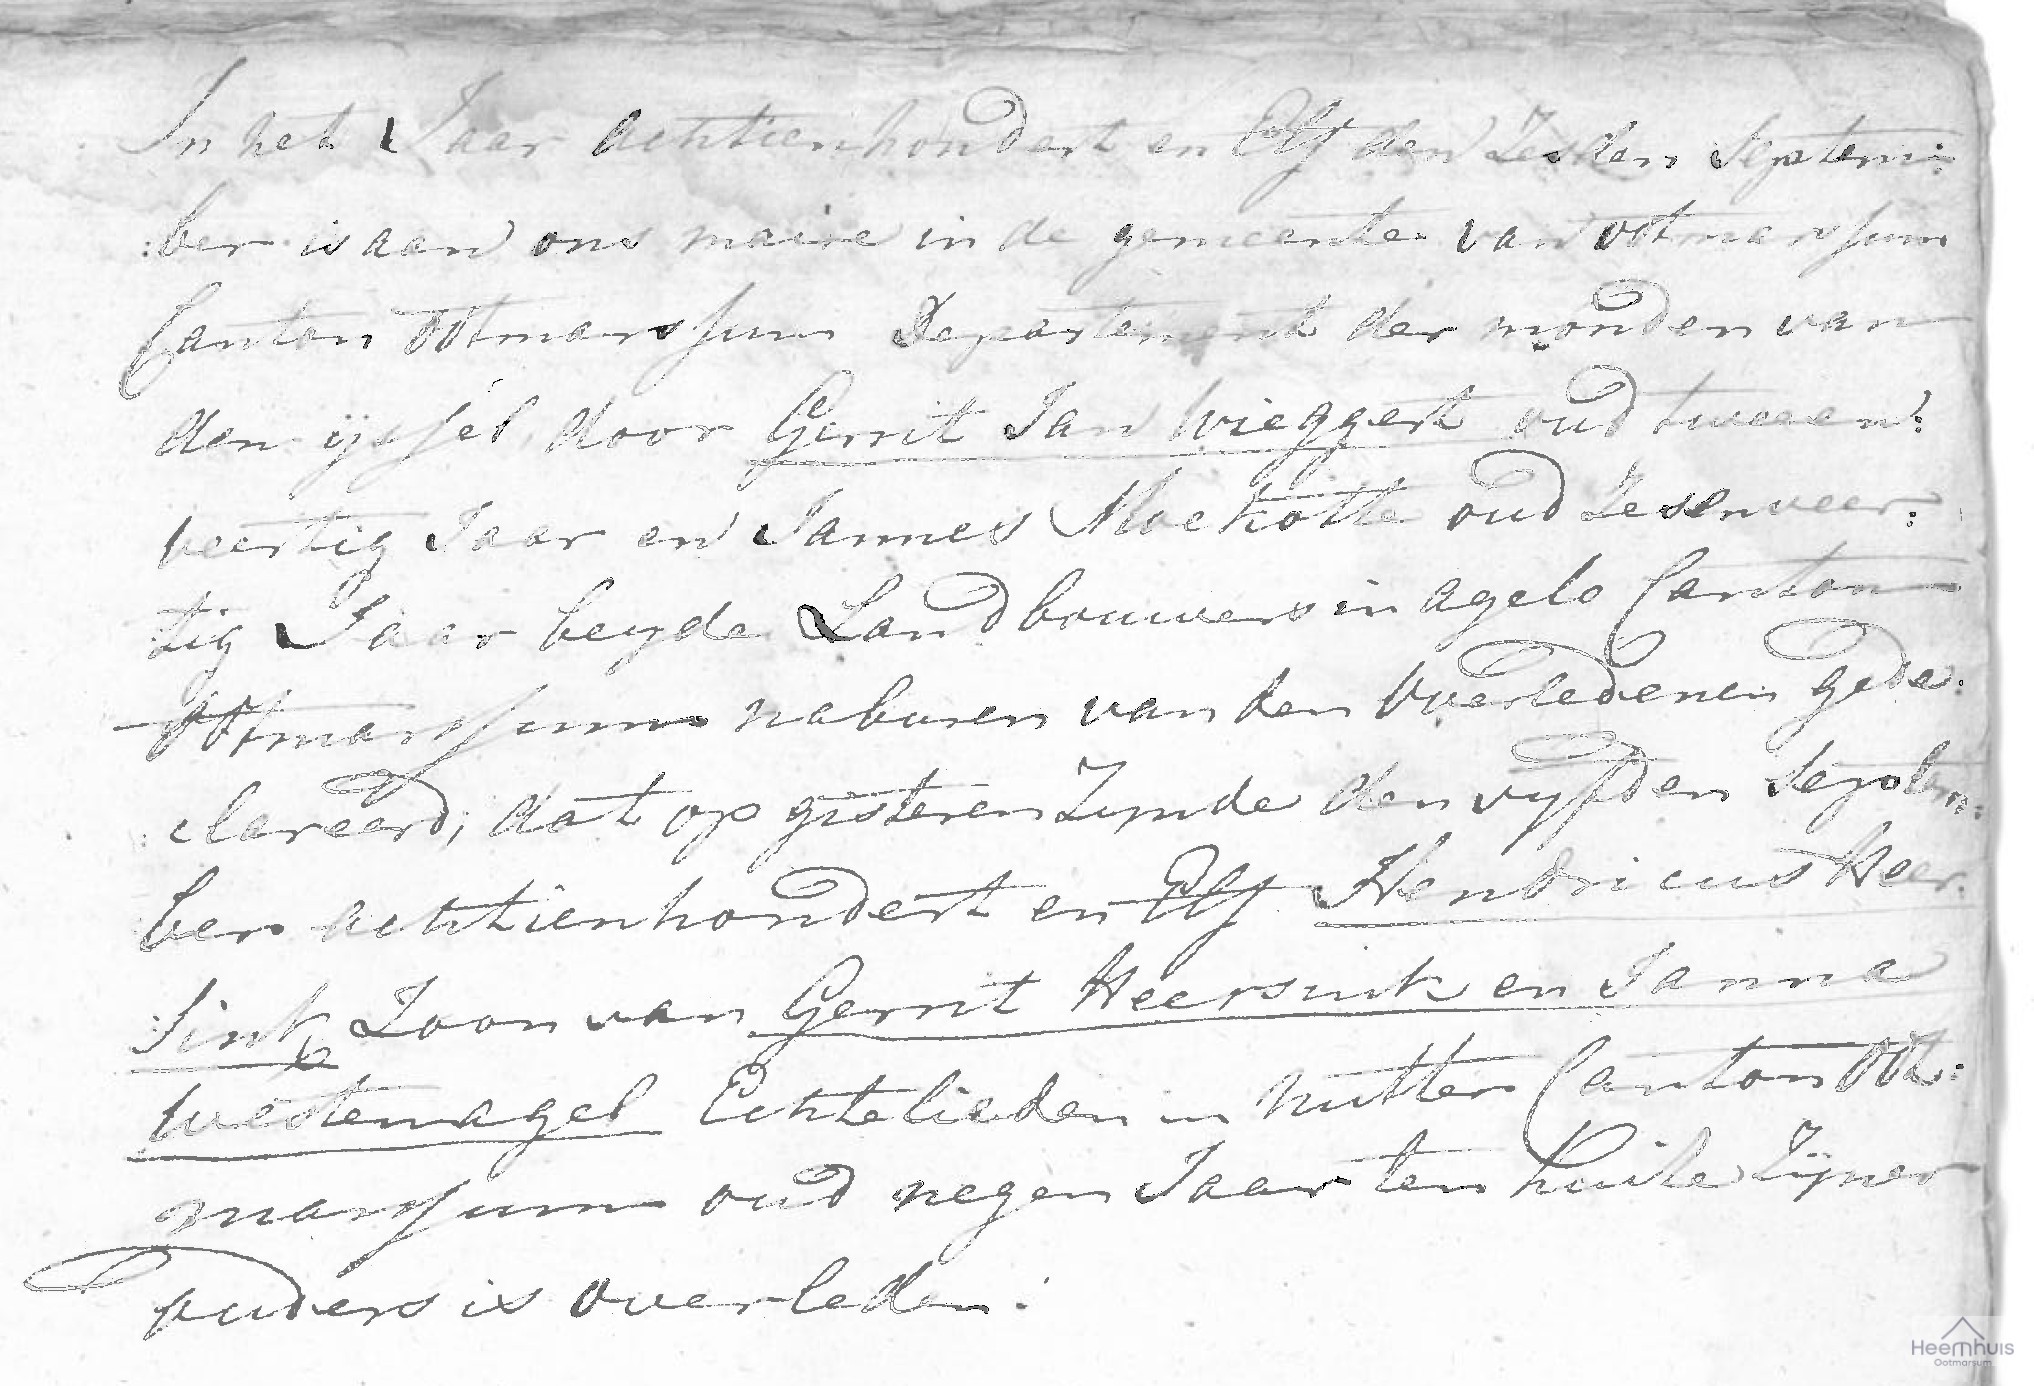 In het Jaar achtienhondert en Elf den Zesden Septem:
:ber is aan ons maire in de gemeente van Otmarssum
Canton Otmarssum Departement der monden van
den ijssel, door Gerrit Jan Wieggert oud tweeen:
veertig Jaar en Jannes Moekotte oud Zesenveer:
tig Jaar beyde Landbouwers in agelo Canton
Otmarssum naburen van den Overledenen gede:
:clareerd, dat op gisteren Zynde den vyfden Septem:
ber achtienhondert en Elf Hendricus Heer:
:sink, Zoon van Gerrit Heersink en Janna
westenagel Echtelieden in nutter Canton Ot:
marssum oud negen Jaar ten huise Zijner
ouders is overleden.
Heemhuis
Ootmarsum